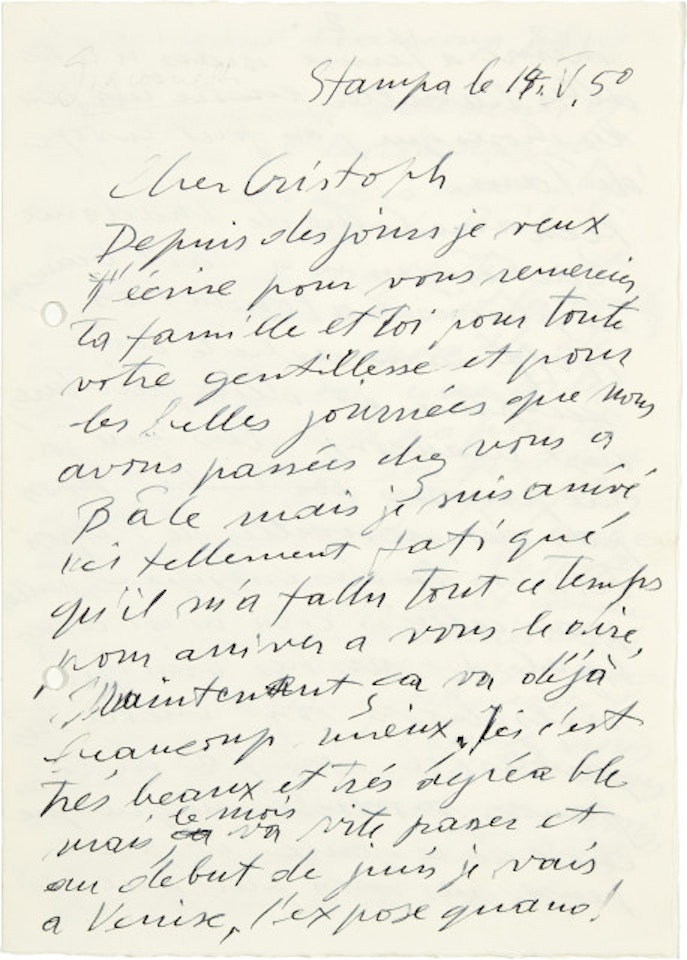 Stampa le 18. V. 50
Cher Cristoph
Depuis des jours je veux
t'écrire pour vous remercier
ta famille et toi pour toute
votre gentillesse et pour
les belles journées que nous
avons passées chez vous a
Bâle mais je suis arrivé
ici tellement fatigué
qu'il m'a fallu tout ce temps
pour arriver a vous le dire,
Maintenant ça va déjà
beaucoup mieux. Ici c'est
trés beaux et trés agréable
mais le mois va vite passer et
au début de juin je vais
a Venise, l'expose quand!